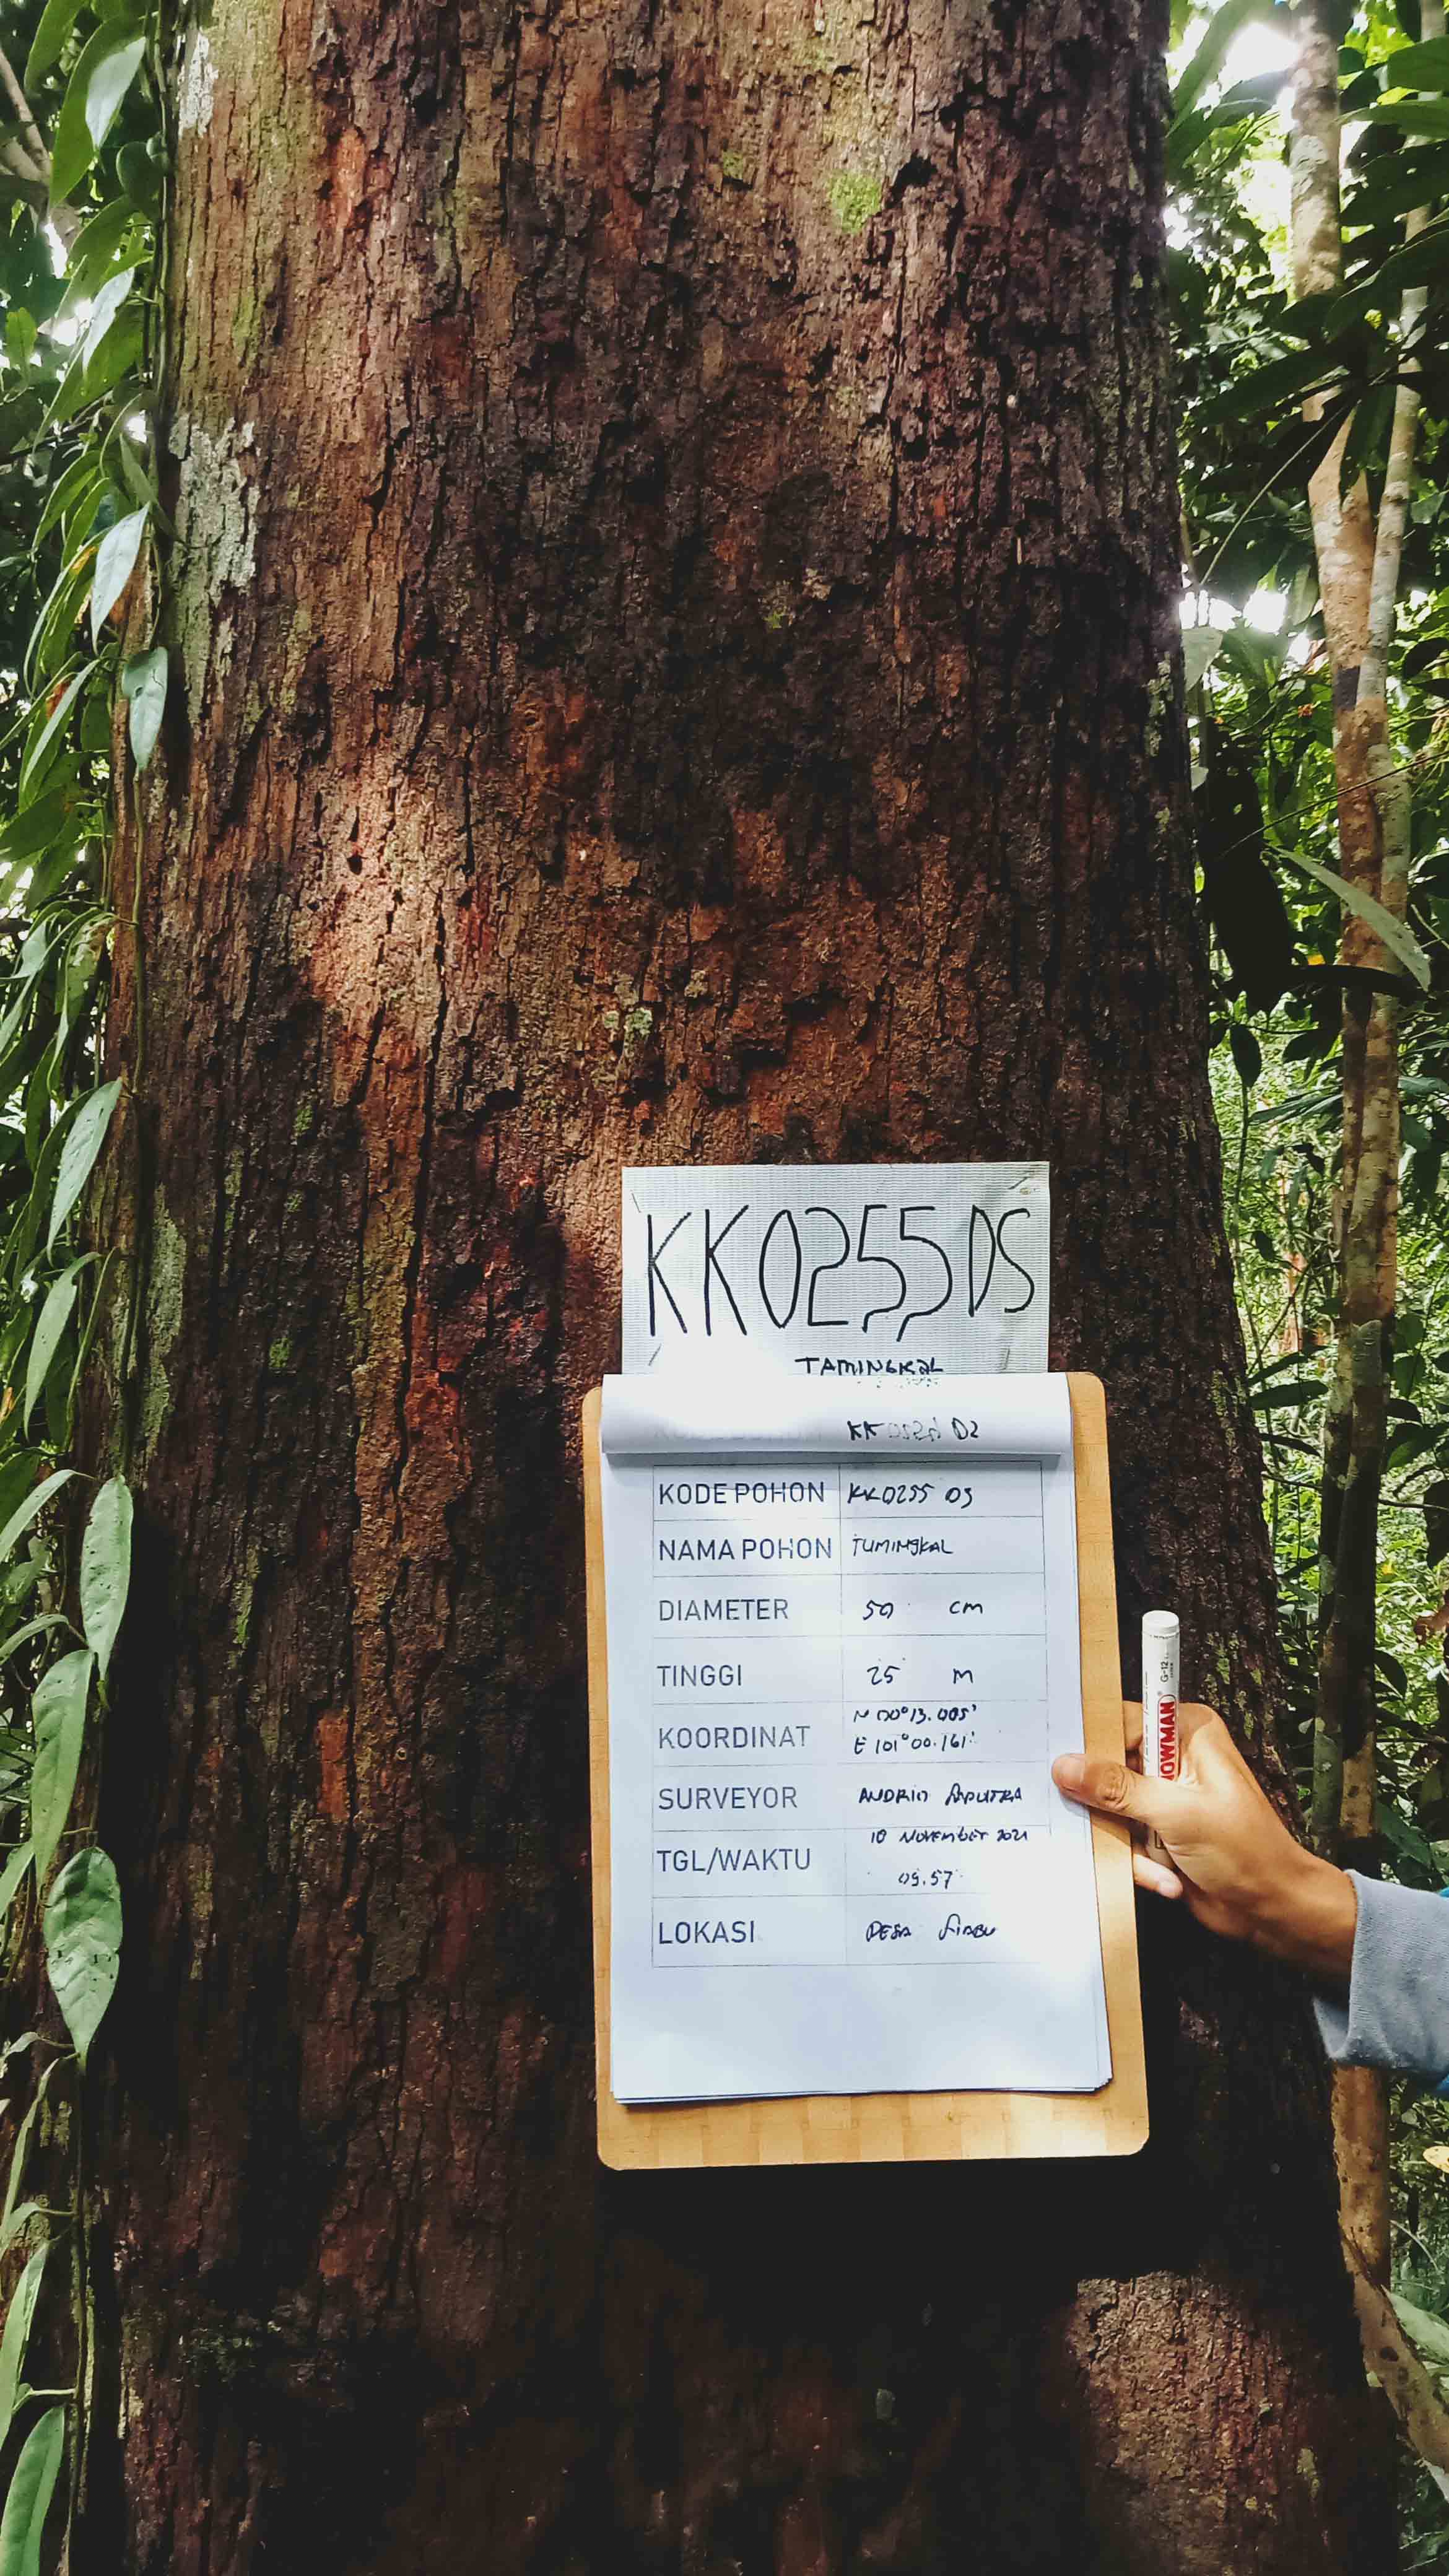 KK0255DS
TAMINGKAL
KK D2
KODE POHON KK0255 DS
NAMA POHON TUMINGKAL
DIAMETER 50 cm
TINGGI 25 m
KOORDINAT N 00°13.005'
E 101°00.161'
SURVEYOR ANDRIO
TGL/WAKTU 10 NOVEMBER 2021
09.57
LOKASI DESA SIABU
SNOWMAN G-12